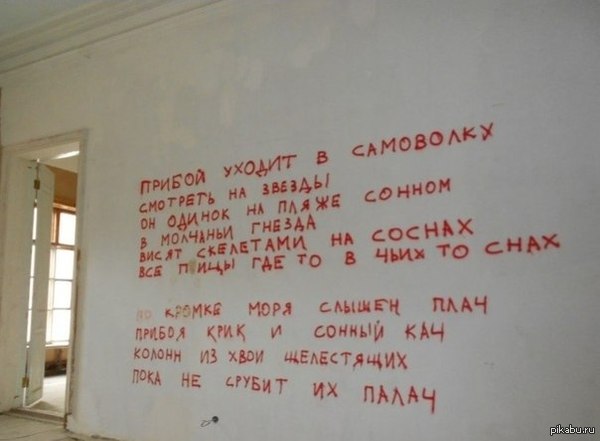 ПРИБОЙ УХОДИТ В САМОВОЛКУ
СМОТРЕТЬ НА ЗВЕЗДЫ
ОН ОДИНОК НА ПЛЯЖЕ СОННОМ
В МОЛЧАНЬИ ГНЕЗДА
ВИСЯТ СКЕЛЕТАМИ НА СОСНАХ
ВСЕ ПТИЦЫ ГДЕ ТО В ЧЬИХ ТО СНАХ
ПО КРОМКЕ МОРЯ СЛЫШЕН ПЛАЧ
ПРИБОЯ КРИК И СОННЫЙ КАЧ
КОЛОНН ИЗ ХВОИ ЩЕЛЕСТЯЩИХ
ПОКА НЕ СРУБИТ ИХ ПАЛАЧ
pikabu.ru